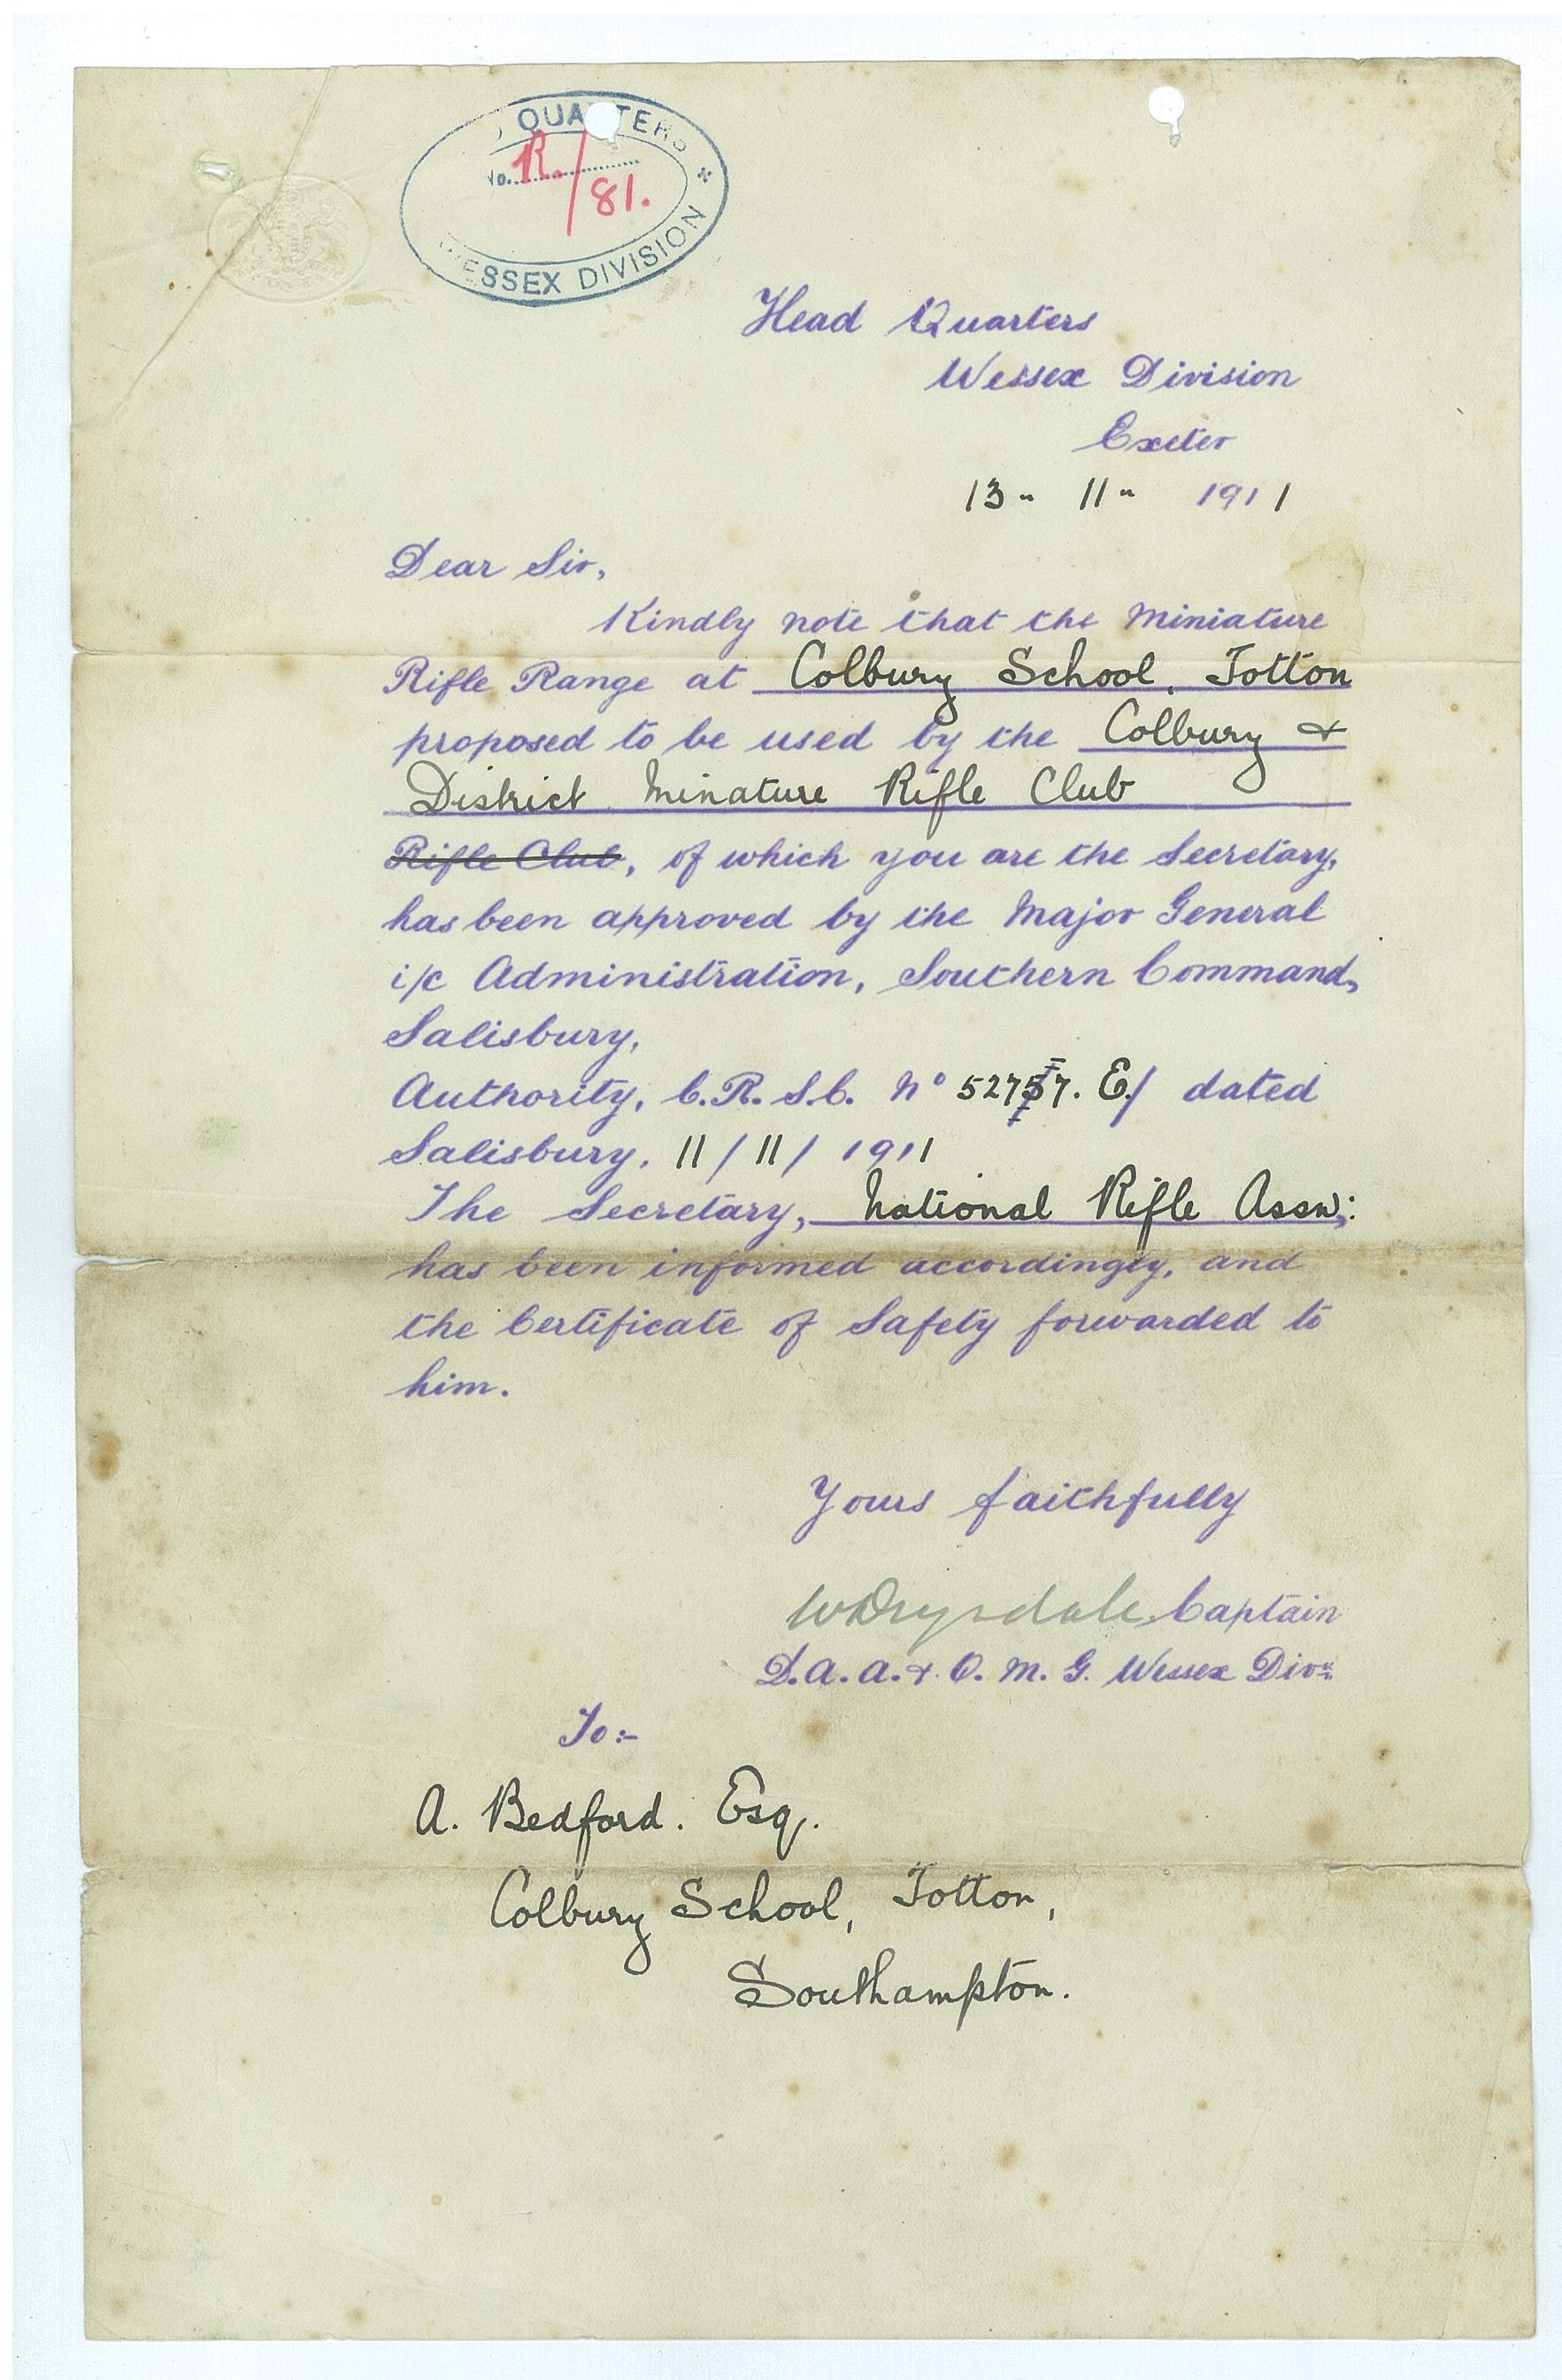 QUARTERS
No. R./81.
WESSEX DIVISION
Head Quarters
Wessex Division
Exeter
13" 11" 1911
Dear Sir,
Kindly note that the Miniature
Rifle Range at Colbury School, Totton
proposed to be used by the Colbury &
District Minature Rifle Club
Rifle Club, of which you are the Secretary,
has been approved by the Major General
i/c Administration, Southern Command,
Salisbury,
Authority, C.R.S.C. No 52757. E/ dated
Salisbury, 11/11/1911
The Secretary, National Rifle Assn:
has been informed accordingly, and
the Certificate of Safety forwarded to
him.
Yours faithfully
WDrysdale Captain
D.A.A. & Q.M.G. Wessex Divn
To:-
A. Bedford. Esq.
Colbury School, Totton,
Southampton.